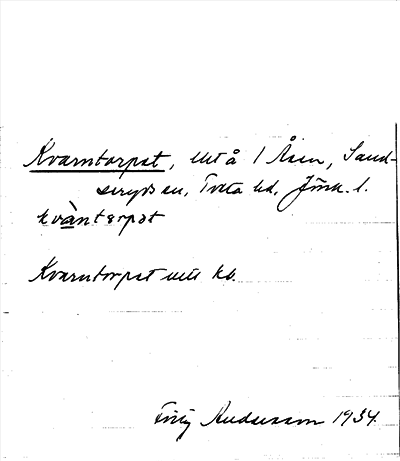 Kvarntorpet, utt å 1 Åsen, Sand-
seryds sn, Tveta hd, Jönk. l.
kvàntorpət
Kvarntorpet utt kb.
Andersson 1934.